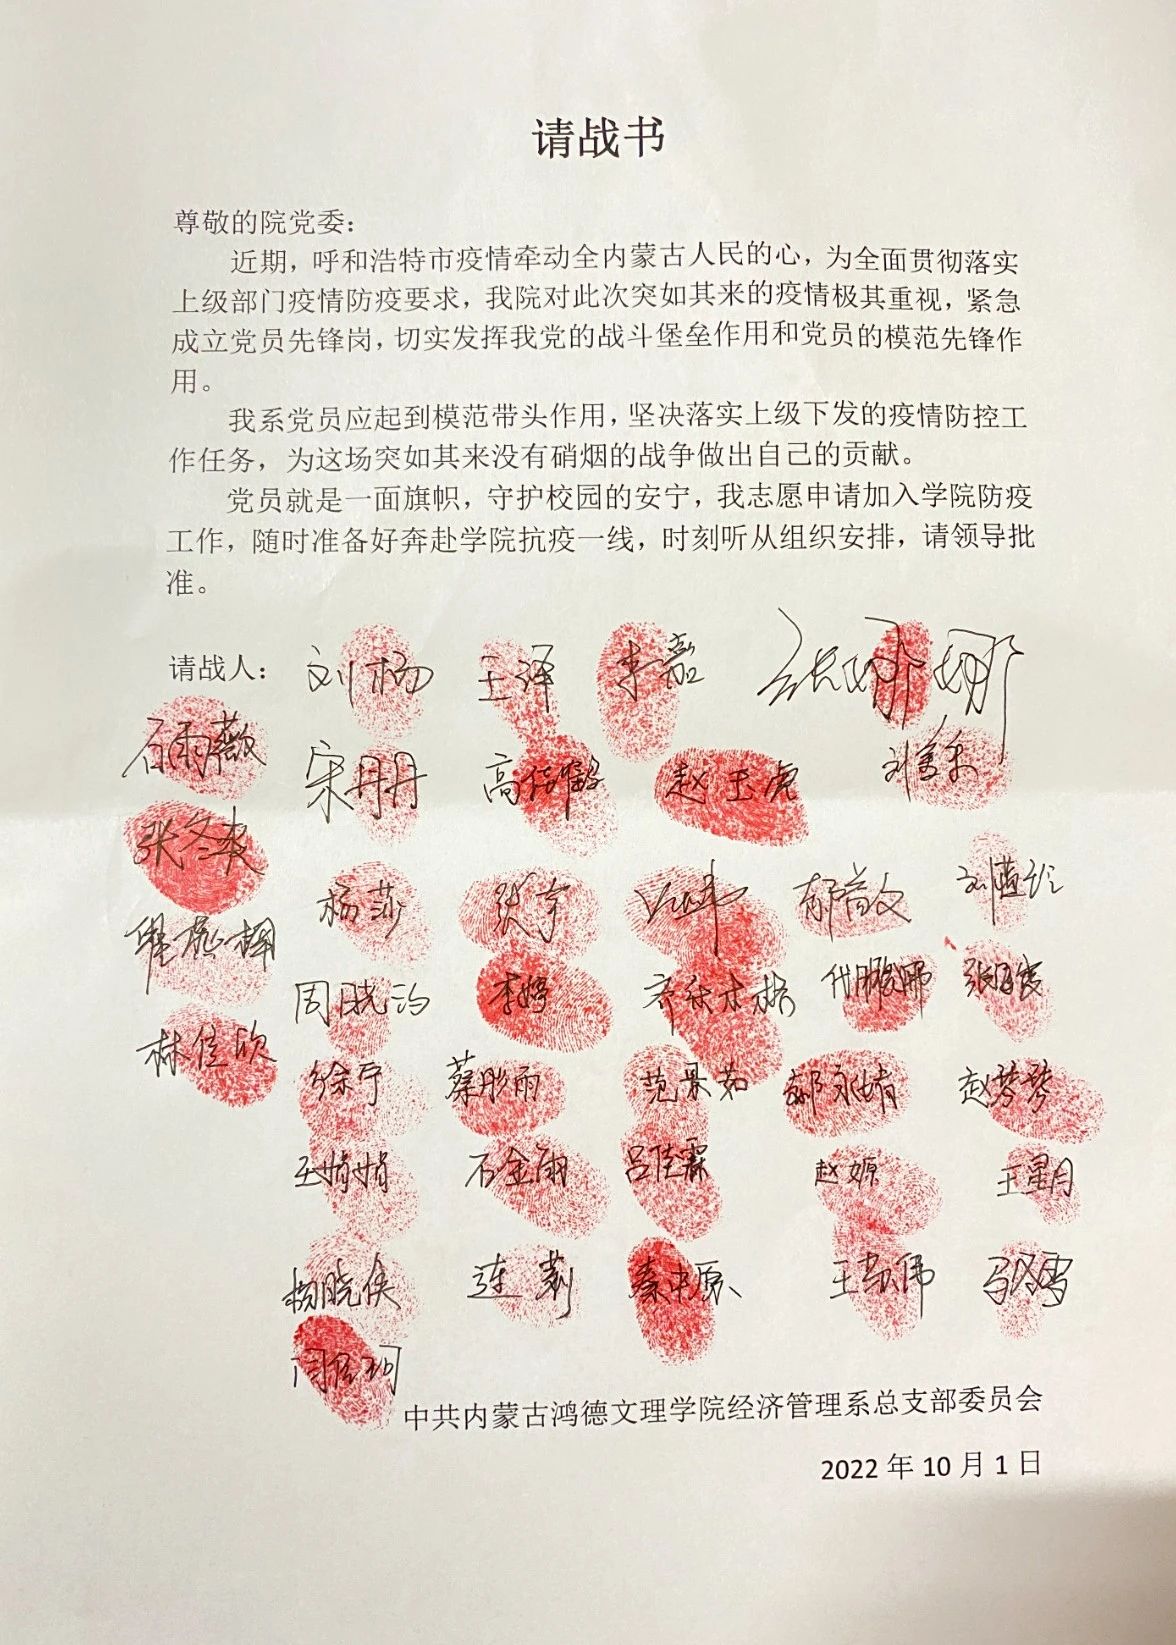 请战书
尊敬的院党委：
近期，呼和浩特市疫情牵动全内蒙古人民的心，为全面贯彻落实
上级部门疫情防疫要求，我院对此次突如其来的疫情极其重视，紧急
成立党员先锋岗，切实发挥我党的战斗堡垒作用和党员的模范先锋作
用。
我系党员应起到模范带头作用，坚决落实上级下发的疫情防控工
作任务，为这场突如其来没有硝烟的战争做出自己的贡献。
党员就是一面旗帜，守护校园的安宁，我志愿申请加入学院防疫
工作，随时准备好奔赴学院抗疫一线，时刻听从组织安排，请领导批
准。
请战人： 刘杨 王泽 李嘉 张娜娜
石雨薇 宋丹丹 赵玉虎
张冬爽
杨莎 张宇
周晓 李婷
林佳欣
徐宁 蔡彤雨 范果茹 郝永婧 赵梦琴
王娟娟 石金雨 吕佳霖 赵嫄 王星月
杨晓侠 连莉 秦中原 马冬雪
中共内蒙古鸿德文理学院经济管理系总支部委员会
2022 年 10 月 1 日